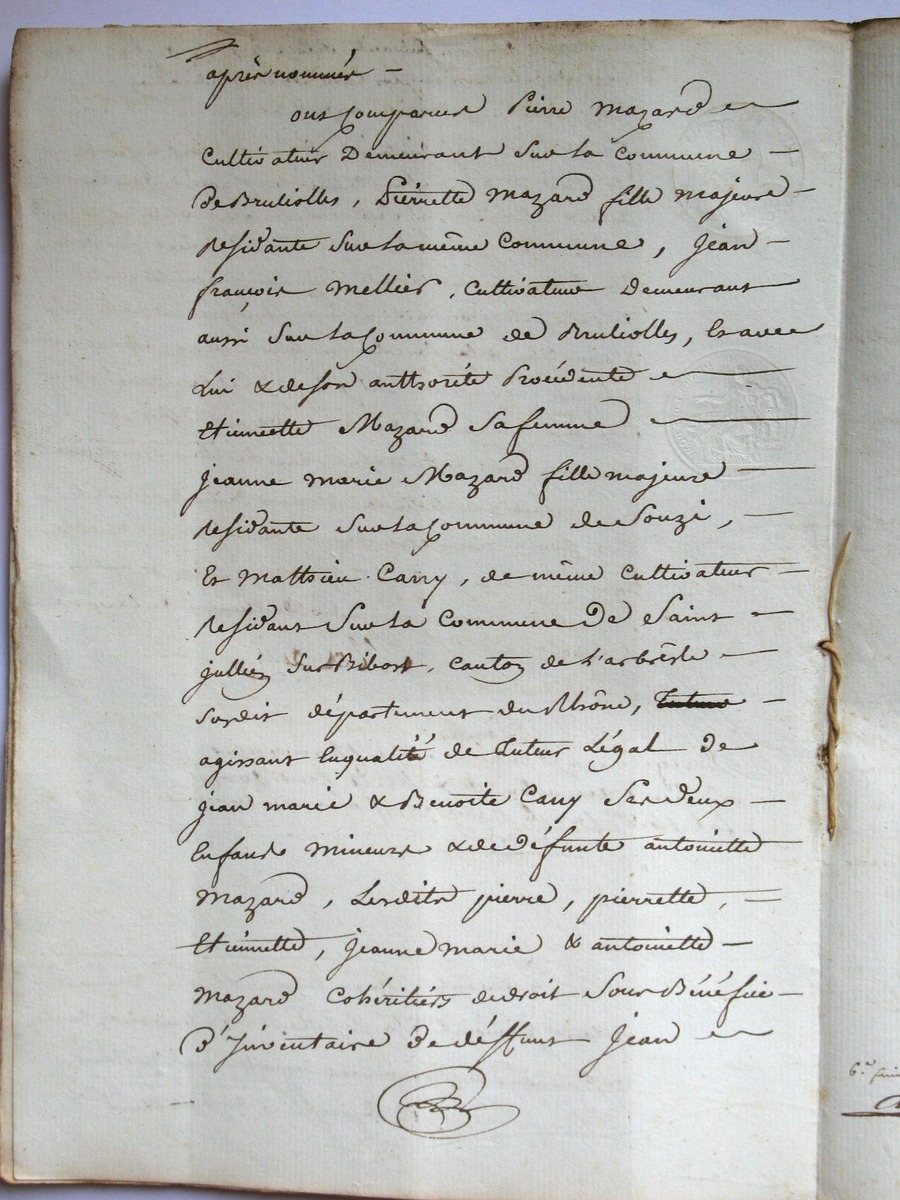 après nommés —
ont Comparus Pierre Mazard
Cultivateur Demeurant Sur la Commune —
de Bruliolles, Pierrette Mazard fille majeure —
residante Sur la même Commune, Jean —
françois Mellier, Cultivateur Demeurant
aussi Sur la Commune de Bruliolles, Et avec
Lui & de son authorité Procédente —
Etiennette Mazard Sa femme —
Jeanne marie Mazard fille majeure —
residante Sur la Commune de Souzi, —
Et Mathieu Carry, de même Cultivateur —
residant Sur la Commune De Saint —
jullien Sur Bibost, Canton de L'arbrêsle —
Susdit département du Rhône, tuteur —
agissant En qualité de Tuteur Légal De
Jean marie & Benoite Carry Ses Deux —
Enfans Mineurs & de défunte antoinette
Mazard, Lesdits pierre, pierrette, =
Etiennette, Jeanne marie & antoinette —
Mazard Cohéritiers de droit Sous Bénéfice —
D'Inventaire De déffunt Jean
6.e